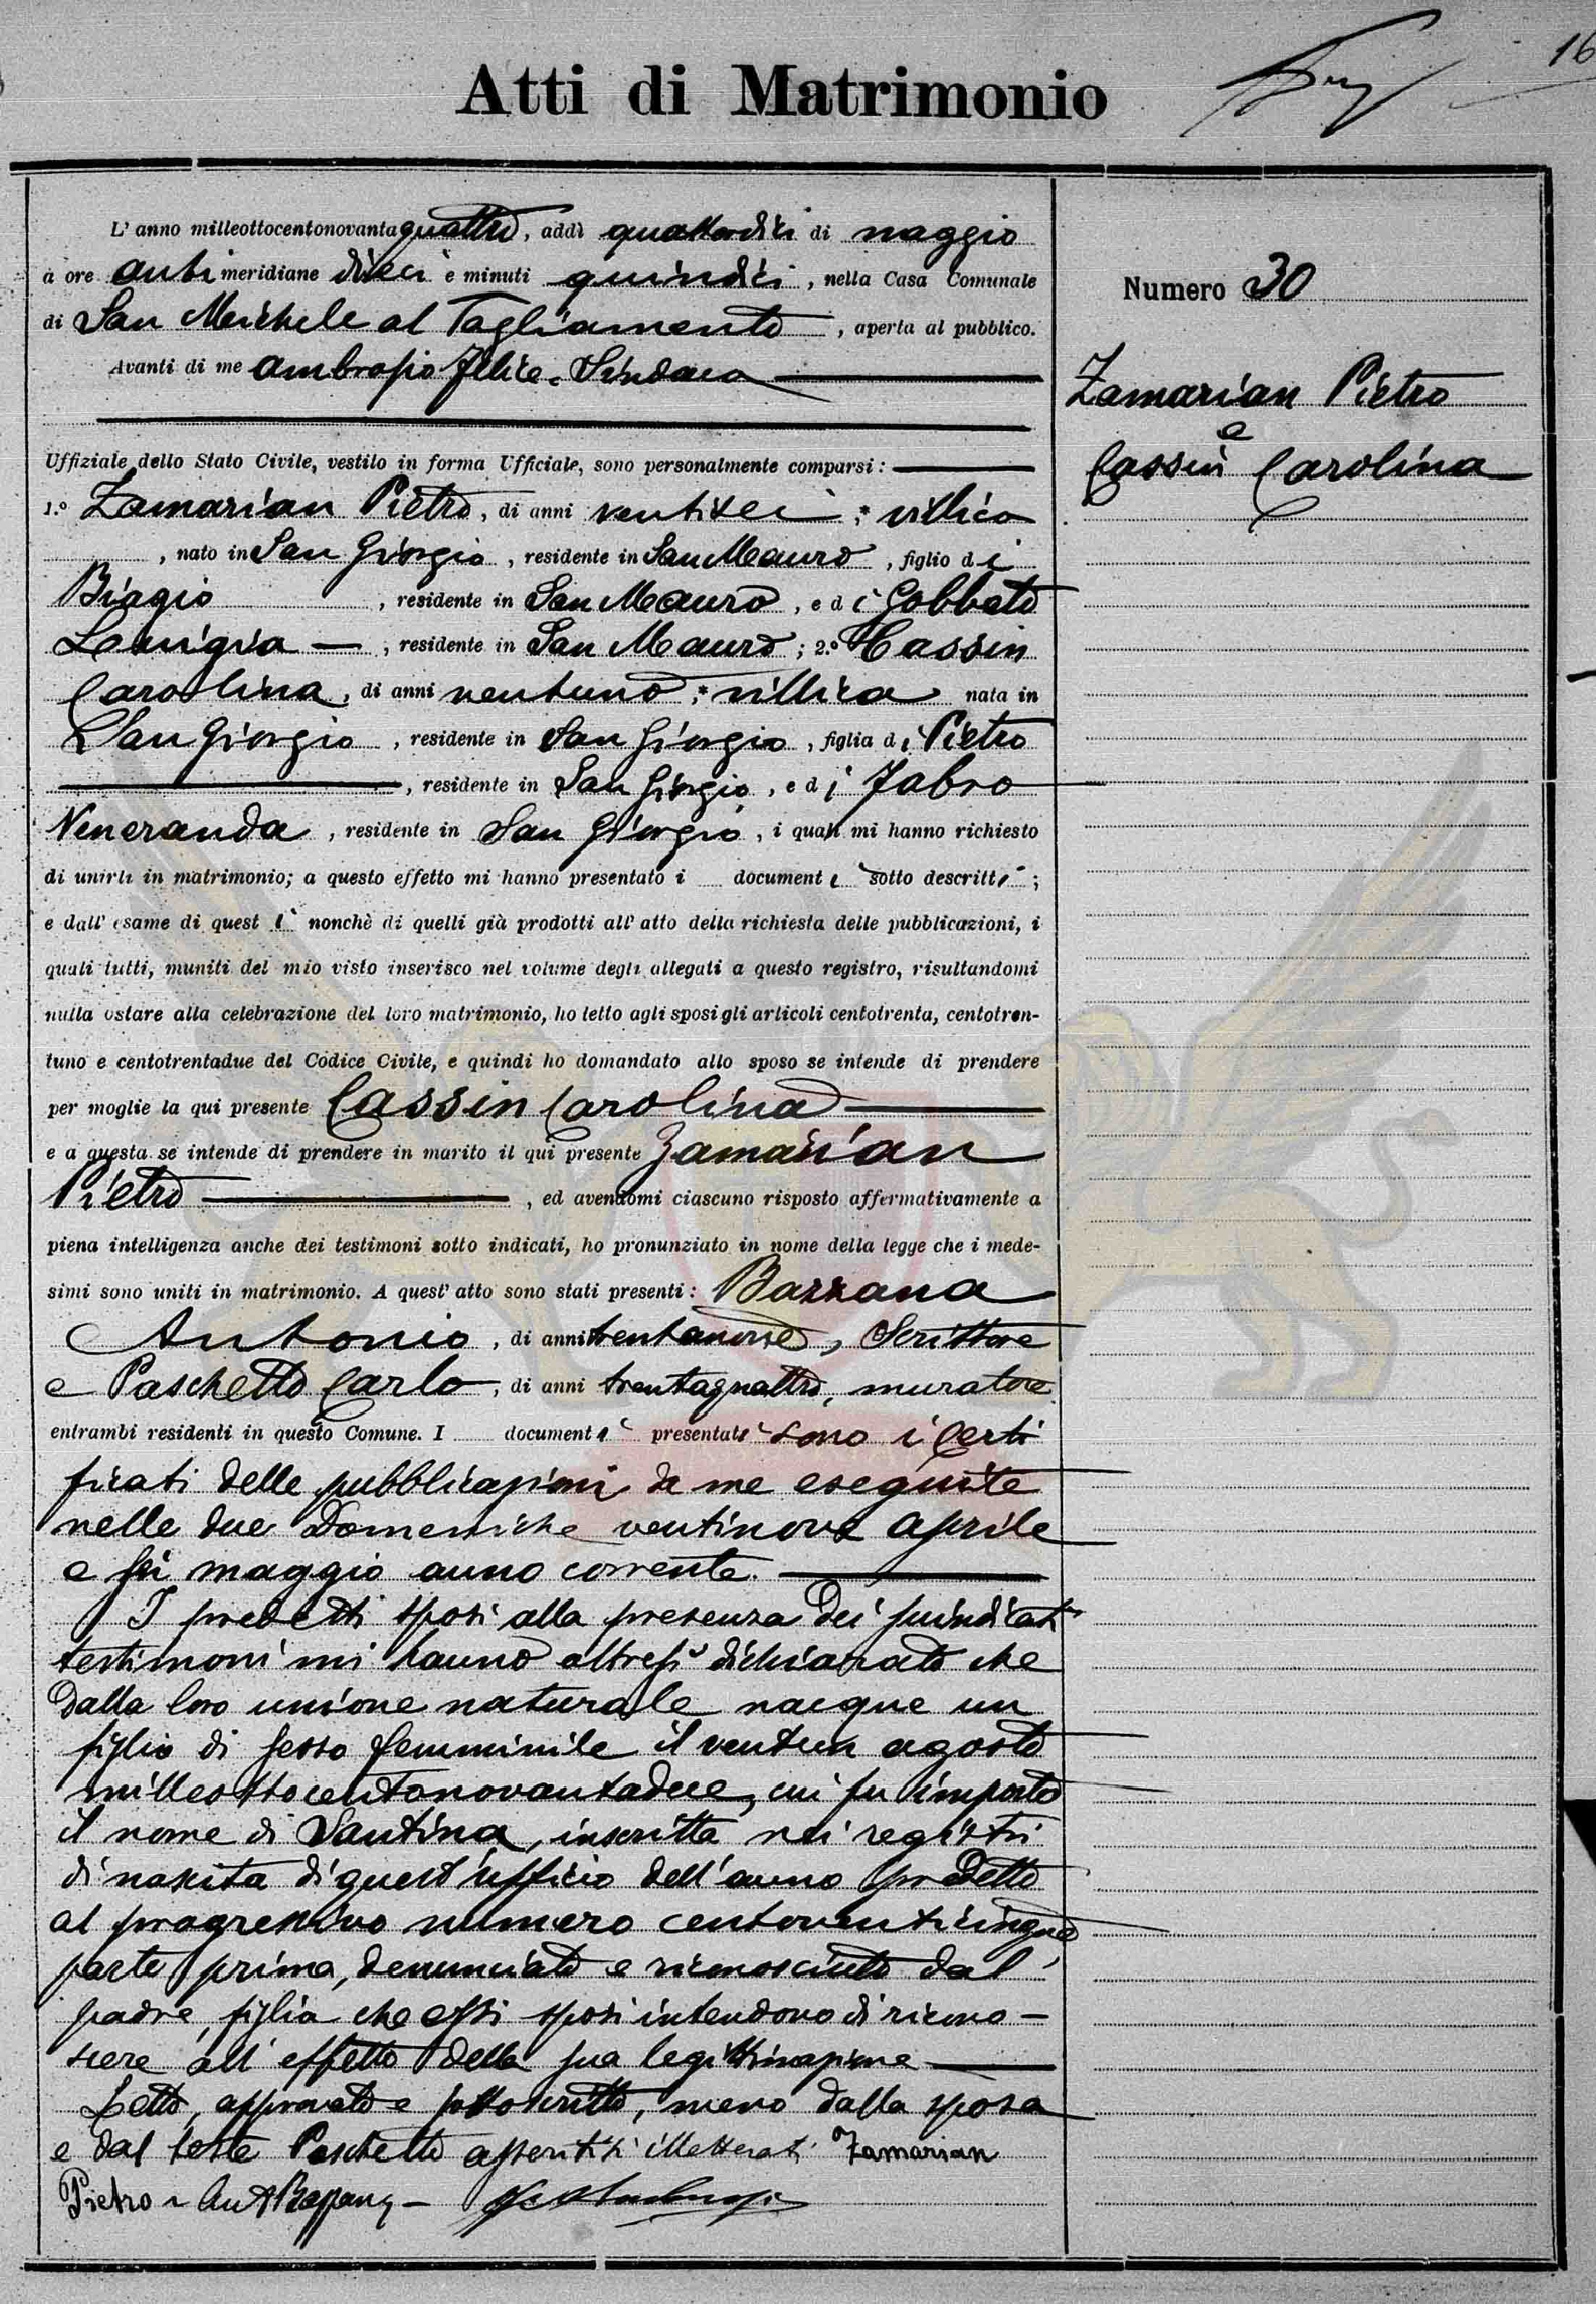 16
Atti di Matrimonio
L'anno milleottocentonovantaquattro, addì quattordici di maggio
a ore anti meridiane dieci e minuti quindici, nella Casa Comunale
di San Michele al Tagliamento, aperta al pubblico.
Avanti di me Ambrosio Felice, Sindaco
Numero 30
Zamarian Pietro
e
Cassin Carolina
Uffiziale dello Stato Civile, vestito in forma Ufficiale, sono personalmente comparsi:
1.° Zamarian Pietro, di anni ventisei, villico
, nato in San Giorgio, residente in San Mauro, figlio di
Biagio, residente in San Mauro, e di Gobbato
Luigia, residente in San Mauro; 2.° Cassin
Carolina, di anni ventuno, villica nata in
San Giorgio, residente in San Giorgio, figlia di Pietro
, residente in San Giorgio, e di Fabro
Veneranda, residente in San Giorgio, i quali mi hanno richiesto
di unirli in matrimonio; a questo effetto mi hanno presentato i documenti sotto descritti;
e dall'esame di questi nonchè di quelli già prodotti all'atto della richiesta delle pubblicazioni, i
quali tutti, muniti del mio visto inserisco nel volume degli allegati a questo registro, risultandomi
nulla ostare alla celebrazione del loro matrimonio, ho letto agli sposi gli articoli centotrenta, centotren-
tuno e centotrentadue del Codice Civile, e quindi ho domandato allo sposo se intende di prendere
per moglie la qui presente Cassin Carolina
e a questa se intende di prendere in marito il qui presente Zamarian
Pietro, ed avendomi ciascuno risposto affermativamente a
piena intelligenza anche dei testimoni sotto indicati, ho pronunziato in nome della legge che i mede-
simi sono uniti in matrimonio. A quest'atto sono stati presenti: Bazzana
Antonio, di anni trentanove, Scrittore
e Paschetto Carlo, di anni trentaquattro, muratore
entrambi residenti in questo Comune. I documenti presentati sono i certi
ficati delle pubblicazioni da me eseguite
nelle due Domeniche ventinove aprile
e sei maggio anno corrente.
I predetti sposi alla presenza dei suindicati
testimoni mi hanno altresì dichiarato che
dalla loro unione naturale nacque un
figlio di sesso femminile il ventun agosto
milleottocentonovantadue, cui fu imposto
il nome di Santina, inscritta nei registri
di nascita di quest'ufficio dell'anno predetto
al progressivo numero centoventicinque
parte prima, denunciato e riconosciuto dal
padre, figlia che essi sposi intendono di ricono-
scere all'effetto della sua legittimazione
Letto, approvato e sottoscritto, meno dalla sposa
e dal teste Paschetto assertisi illetterati Zamarian
Pietro - Ant Bazzana -